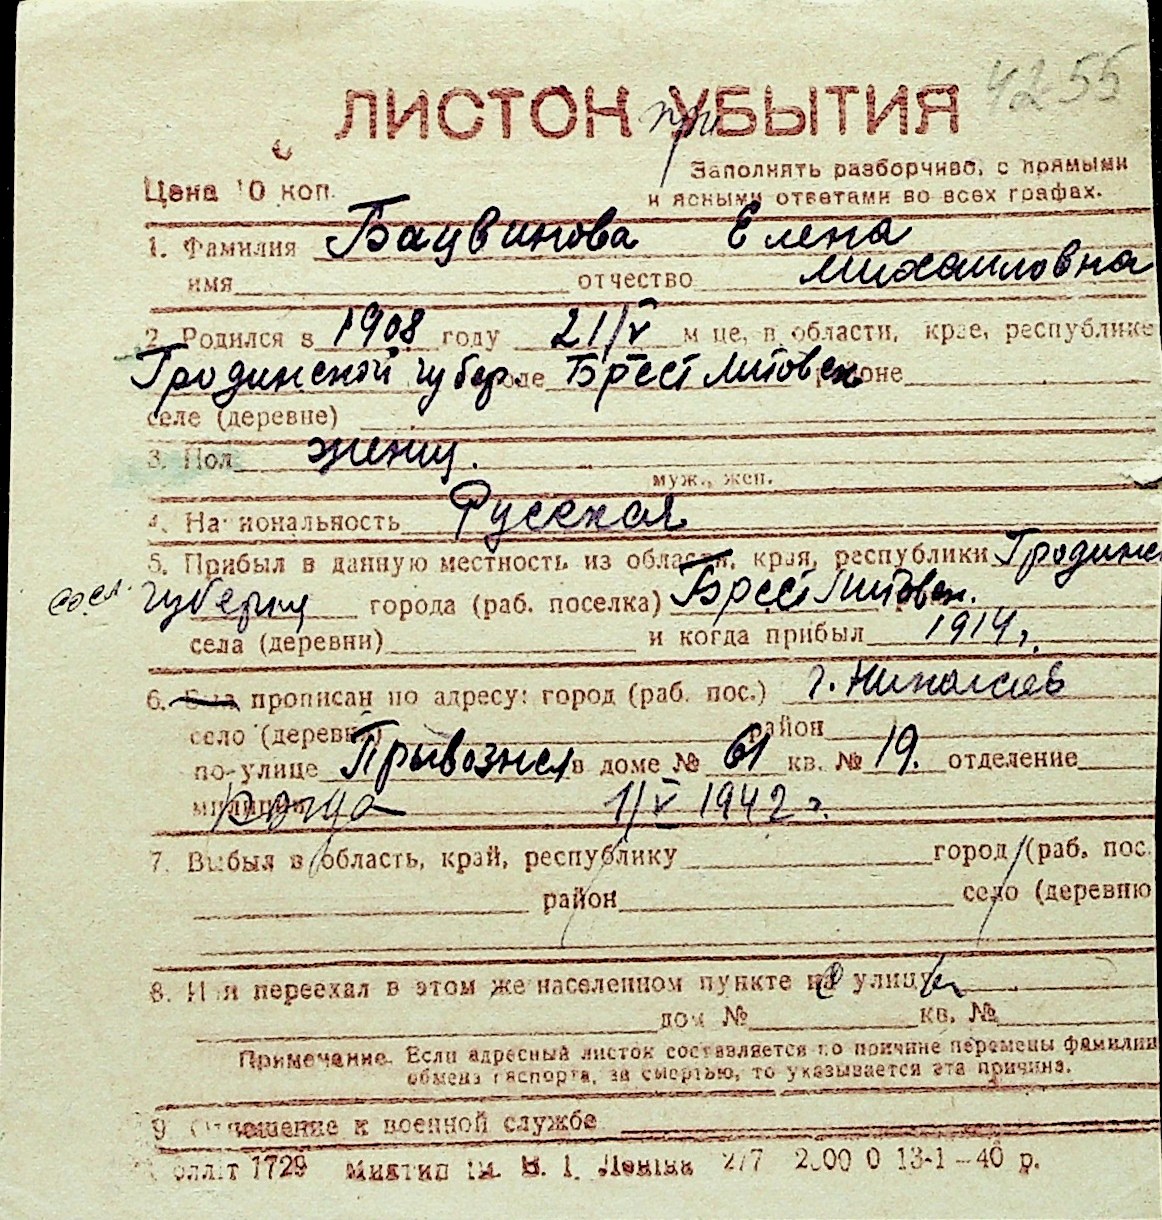 4255
ЛИСТОК при УБЫТИЯ
Цена 10 коп.
Заполнять разборчиво, с прямыми
и ясными ответами во всех графах.
1. Фамилия Бацвинова Елена
имя отчество Михайловна
2. Родился в 1908 году 21/V м-це, в области, крае, республике
Гродненской губер. роде Брест Литовск районе
селе (деревне)
3. Пол женщ.
муж., жен.
4. Национальность Русская
5. Прибыл в данную местность из области, края, республики Гроднен
губерния города (раб. поселка) Брест Литовск.
села (деревни) и когда прибыл 1914 г.
6. Был прописан по адресу: город (раб. пос.) г. Николаев
село (деревня) район
по улице Привозная в доме № 61 кв. № 19. отделение
милиции когда 1/V 1942 г.
7. Выбыл в область, край, республику город (раб. пос.
район село (деревню
8. Или переехал в этом же населенном пункте на улицу
дом № кв. №
Примечание. Если адресный листок составляется по причине перемены фамилии
обмена паспорта, за смертью, то указывается эта причина.
9. Отношение к военной службе
оллiт 1729 Миктип iм. В. I. Ленiна 2/7 2000 0 13-1-40 р.